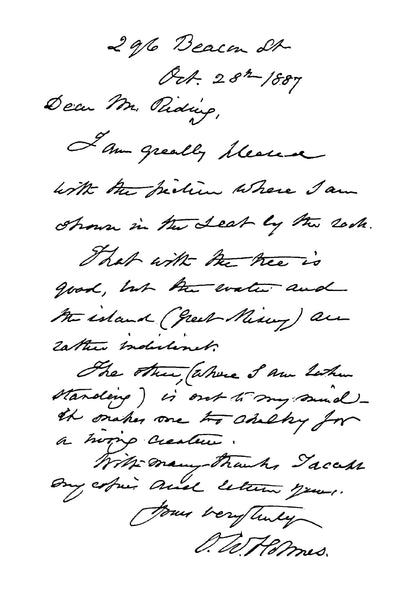 296 Beacon St
Oct. 28th 1887
Dear Mr. Riding,
I am greatly pleased
with the picture where I am
shown in the seat by the rock.
That with the tree is
good, but the water and
the island (Great Misery) are
rather indistinct.
The other, (where I am taken
standing) is not to my mind—
It makes me too chalky for
a living creature.
With many thanks I accept
my copies and return yours.
Yours very truly
O. W. Holmes.